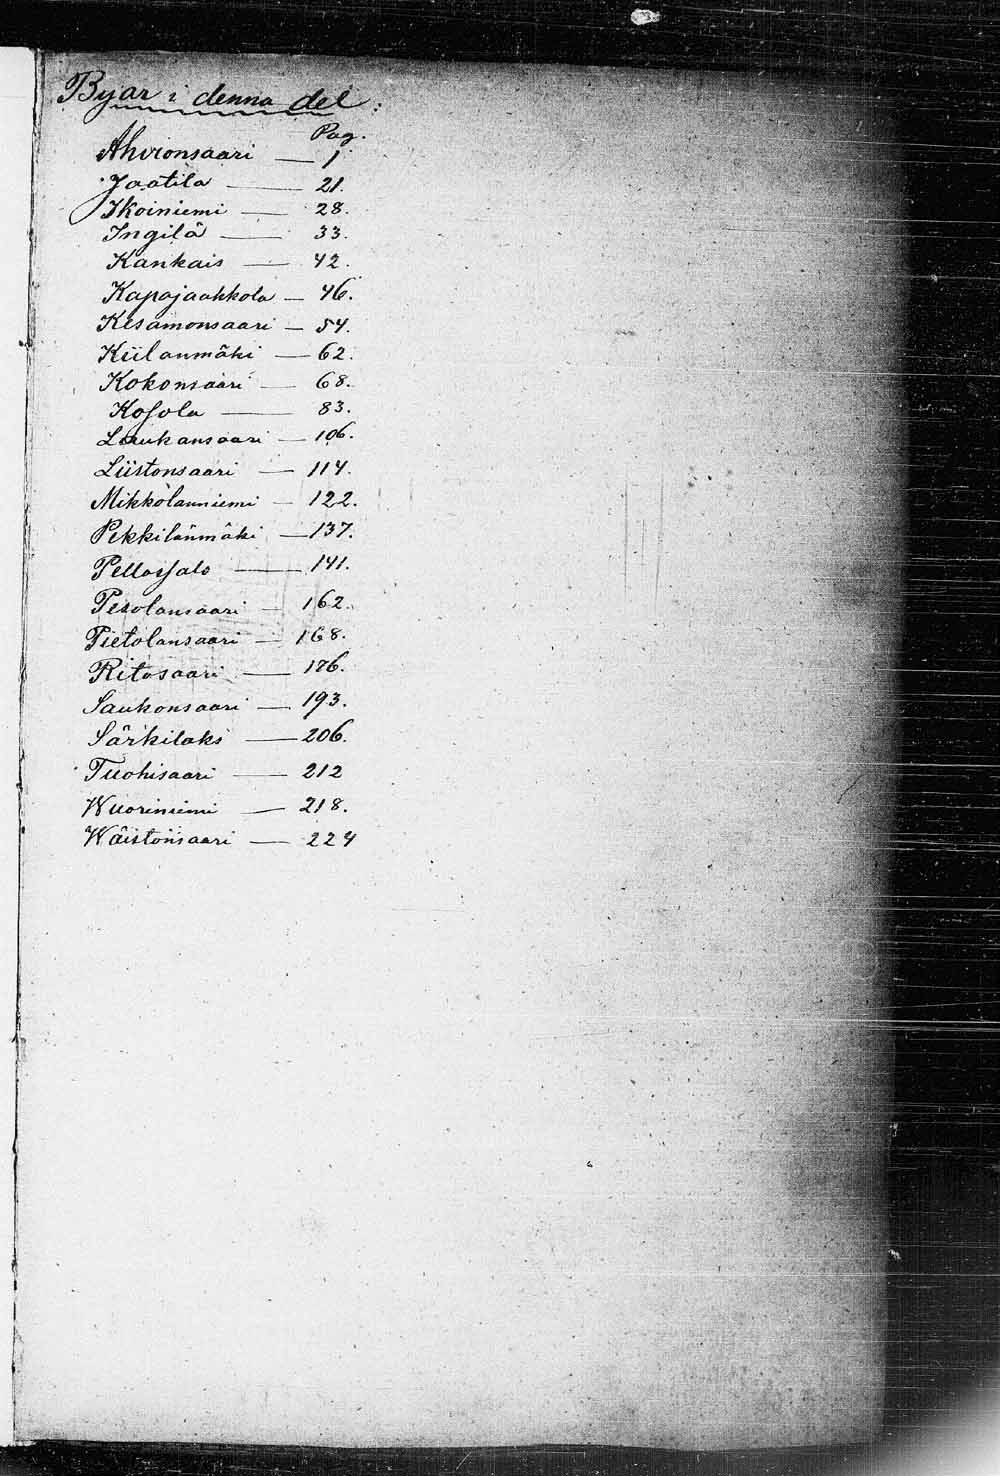 Byar i denna del:
Pag.
Ahvionsaari — 1
Jaatila — 21.
Ikoiniemi — 28.
Ingilä — 33.
Kankais — 42.
Kapajaakkola — 46.
Kesamonsaari — 54.
Kiilanmäki — 62.
Kokonsaari — 68.
Kosola — 83.
Laukansaari — 106.
Liistonsaari — 114.
Mikkolanniemi — 122.
Pekkilänmäki — 137.
Pellossalo — 141.
Pesolansaari — 162.
Pietolansaari — 168.
Ritosaari — 176.
Saukonsaari — 193.
Särkilaks — 206.
Tuohisaari — 212
Wuoriniemi — 218.
Wäistönsaari — 224